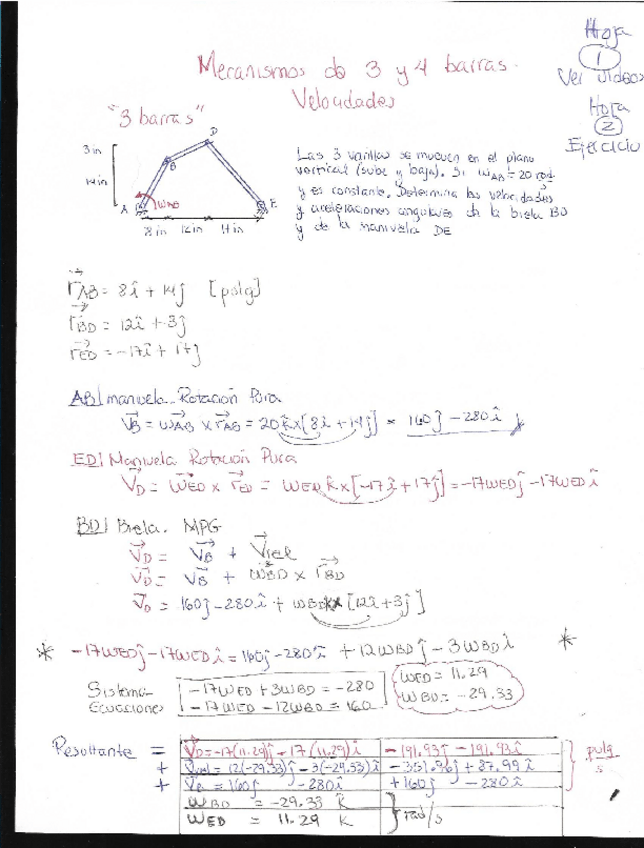 Hoja
1
Ver videos
Hoja
2
Ejercicio
Mecanismos de 3 y 4 barras.
Velocidades
"3 barras"
3 in
14 in
A
B
D
E
ωAB
8 in 12 in 17 in
Las 3 varillas se mueven en el plano
vertical (sube y baja). Si ωAB = 20 rad
y es constante. Determina las velocidades
y aceleraciones angulares de la biela BD
y de la manivela DE
rAB = 8î + 14j [pulg]
rBD = 12î + 3j
rED = -17î + 17j
AB| manivela. Rotación Pura
VB = ωAB x rAB = 20k x [8î + 14j] = 160j - 280î
ED| Manivela Rotación Pura
VD = ωED x rED = ωED k x [-17î + 17j] = -17ωEDj - 17ωED î
BD| Biela. MPG
VD = VB + Vrel
VD = VB + ωBD x rBD
VD = 160j - 280î + ωBD k x [12î + 3j]
* -17ωEDj - 17ωED î = 160j - 280î + 12ωBDj - 3ωBD î *
Sistema Ecuaciones
-17ωED + 3ωBD = -280
-17ωED - 12ωBD = 160
ωED = 11.29
ωBD = -29.33
Resultante = VD = -17(11.29)j - 17(11.29)î -191.93j - 191.93î pulg/s
+ Vrel = 12(-29.33)j - 3(-29.33)î -351.96j + 87.99î
+ VB = 160j - 280î +160j - 280î
ωBD = -29.33 k
ωED = 11.29 k
rad/s